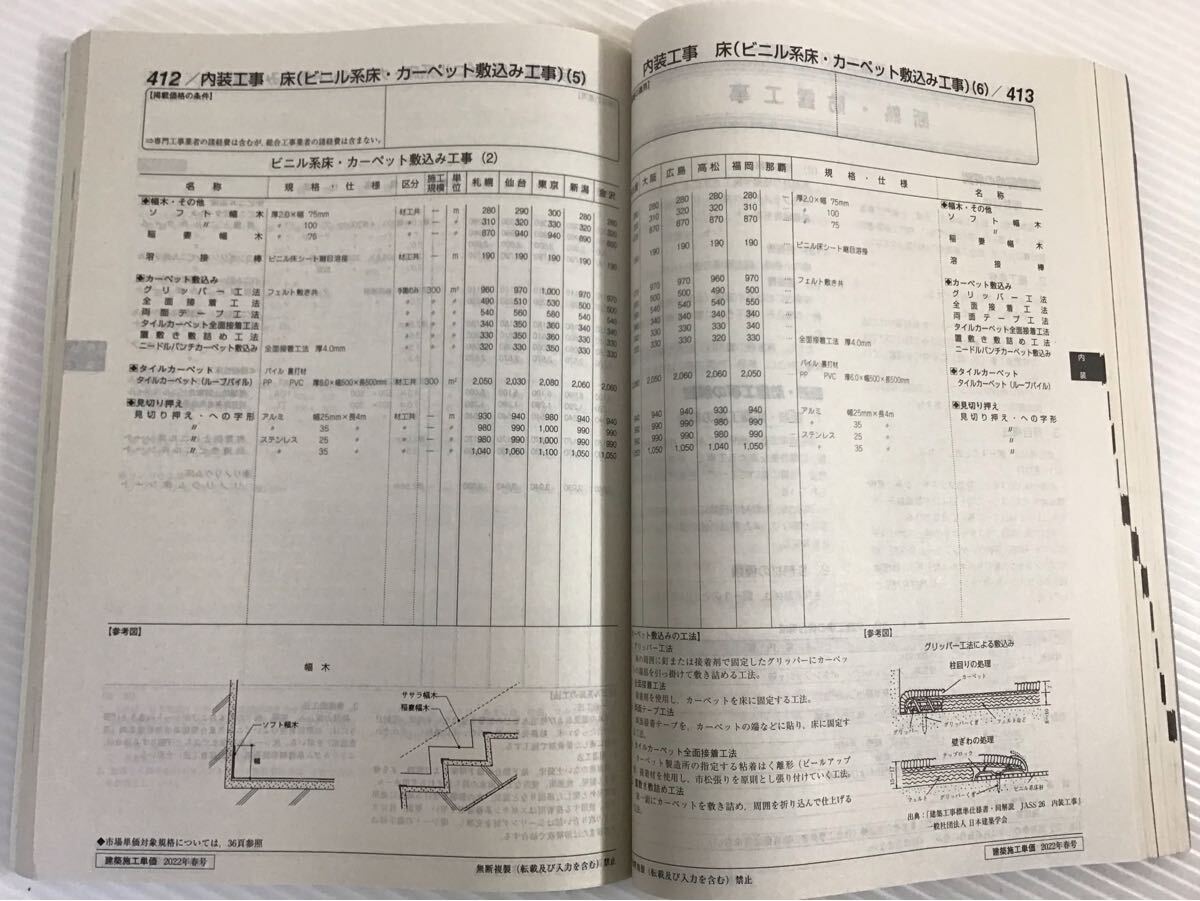 412／内装工事 床（ビニル系床・カーペット敷込み工事）(5)
【掲載価格の条件】
⇨専門工事業者の諸経費は含むが，総合工事業者の諸経費は含まない。
ビニル系床・カーペット敷込み工事（2）
名称 規格・仕様 区分 施工規模 単位 札幌 仙台 東京 新潟 金沢
◆幅木・その他
ソフト幅木 厚2.0×幅 75mm 材工共 — m 280 290 300 280 280
〃 〃 100 〃 — 〃 310 320 330 320
稲妻幅木 〃 75 〃 — 〃 870 940 940 890
溶接棒 ビニル床シート継目溶接 材工共 — m 190 190 190 190 190
◆カーペット敷込み
グリッパー工法 フェルト敷き共 300 m² 960 970 1,000 970 970
全面接着工法 〃 〃 490 510 530 500 500
両面テープ工法 〃 〃 540 560 580 540 540
タイルカーペット全面接着工法 〃 〃 340 350 360 340 340
置敷き敷詰め工法 〃 〃 330 340 350 330 330
ニードルパンチカーペット敷込み 全面接着工法 厚4.0mm 〃 〃 320 330 350 330 330
◆タイルカーペット パイル 裏打材
タイルカーペット（ループパイル） PP PVC 厚6.0×幅500×長500mm 材工共 300 m² 2,050 2,030 2,080 2,060 2,060
◆見切り押え
見切り押え・への字形 アルミ 幅25mm×長4m 材工共 — m 930 940 980 940 940
〃 〃 35 〃 〃 — 〃 980 990 1,000 990 990
〃 ステンレス 25 〃 〃 — 〃 980 990 1,000 990 990
〃 〃 35 〃 〃 — 〃 1,040 1,060 1,100 1,050 1,050
【参考図】
幅木
ソフト幅木
幅
ササラ幅木
稲妻幅木
◆市場単価対象規格については，36頁参照
建築施工単価 2022年春号
無断複製（転載及び入力を含む）禁止
内装工事 床（ビニル系床・カーペット敷込み工事）(6)／413
大阪 広島 高松 福岡 那覇 規格・仕様 名称
280 280 280 280 … 厚2.0×幅 75mm ◆幅木・その他
310 320 320 310 … 〃 100 ソフト幅木
870 870 870 870 … 〃 75 〃
稲妻幅木
190 190 190 190 … ビニル床シート継目溶接 溶接棒
◆カーペット敷込み
970 970 960 970 … フェルト敷き共 グリッパー工法
500 500 490 500 … 全面接着工法
540 540 540 550 … 両面テープ工法
340 340 340 340 … タイルカーペット全面接着工法
330 330 330 340 … 置敷き敷詰め工法
330 330 320 330 … 全面接着工法 厚4.0mm ニードルパンチカーペット敷込み
パイル 裏打材 ◆タイルカーペット
2,050 2,060 2,060 2,050 … PP PVC 厚6.0×幅500×長500mm タイルカーペット（ループパイル）
◆見切り押え
940 940 930 940 … アルミ 幅25mm×長4m 見切り押え・への字形
990 990 980 990 … 〃 35 〃 〃
990 990 980 990 … ステンレス 25 〃 〃
1,050 1,050 1,040 1,050 … 〃 35 〃 〃
内装
カーペット敷込みの工法】
グリッパー工法
の周囲に釘または接着剤で固定したグリッパーにカーペッ
の端部を引っ掛けて敷き詰める工法。
全面接着工法
着剤を使用し，カーペットを床に固定する工法。
両面テープ工法
面接着テープを，カーペットの端などに貼り，床に固定す
る工法。
タイルカーペット全面接着工法
カーペット製造所の指定する粘着はく離形（ピールアップ
接着材を使用し，市松張りを原則とし張り付けていく工法。
置敷き敷詰め工法
一面にカーペットを敷き詰め，周囲を折り込んで仕上げる
工法。
【参考図】
グリッパー工法による敷込み
柱回りの処理
カーペット
グリッパー
グリッパーくぎ
フェルトなど
壁ぎわの処理
タップロック
フェルト
グリッパーくぎ
ビニル系床材
出典：「建築工事標準仕様書・同解説 JASS 26 内装工事」
一般社団法人 日本建築学会
建築施工単価 2022年春号
複製（転載及び入力を含む）禁止